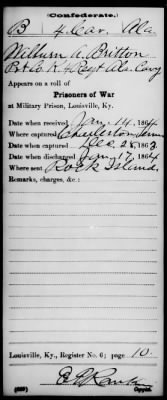 (Confederate.)
B 4 Cav. Ala
Wilburn A. Britton
Pvt Co. K. 4 Regt Ala. Cavy
Appears on a roll of
Prisoners of War
at Military Prison, Louisville, Ky.
Date when received Jan. 14, 1864
Where captured Charleston Tenn
Date when captured Dec. 28, 1863
Date when discharged Jan. 17, 1864
Where sent Rock Island
Remarks, charges, &c.:
Louisville, Ky., Register No. 6; page 10.
(639)
Copyist.